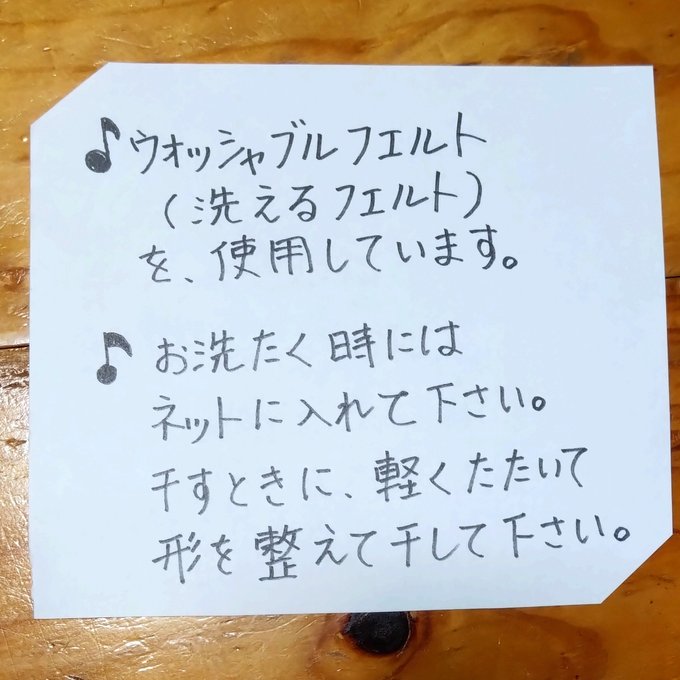 ♪ウオッシャブルフエルト
(洗えるフエルト)
を、使用しています。
♪お洗たく時には
ネットに入れて下さい。
干すときに、軽くたたいて
形を整えて干して下さい。